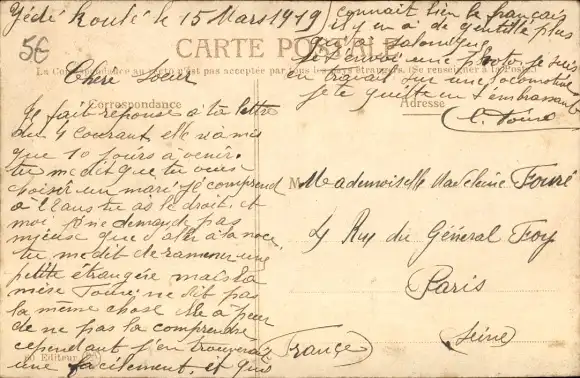 Yédi Koulé le 15 Mars 1919
5€
CARTE POSTALE
La Correspondance au recto n'est pas acceptée par tous les pays étrangers. (Se renseigner à la Poste)
Correspondance
Adresse
Chère Sœur
Je fait réponse à ta lettre
du 4 courant, elle n'a mis
que 10 jours à venir.
tu me dit que tu veus
choisir un mari je comprend
à 12 ans tu as le droit, et
moi je ne demande pas
mieuse que d'aller à la noce,
tu me dit de ramener une
petite étrangère mais la
mère Fouré ne dit pas
la même chose elle à peur
de ne pas la comprendre
cependant j'en trouverai
une facilement, et qui
connait bien le français
il y en à de gentille plus
qu'à Salonique
Je t'envoi une photo, je suis
en travail sur une locomotive
je te quitte en t'embrassant
Mademoiselle Madeleine Fouré
4 Rue du Général Foy
Paris
Seine
France
Editeur